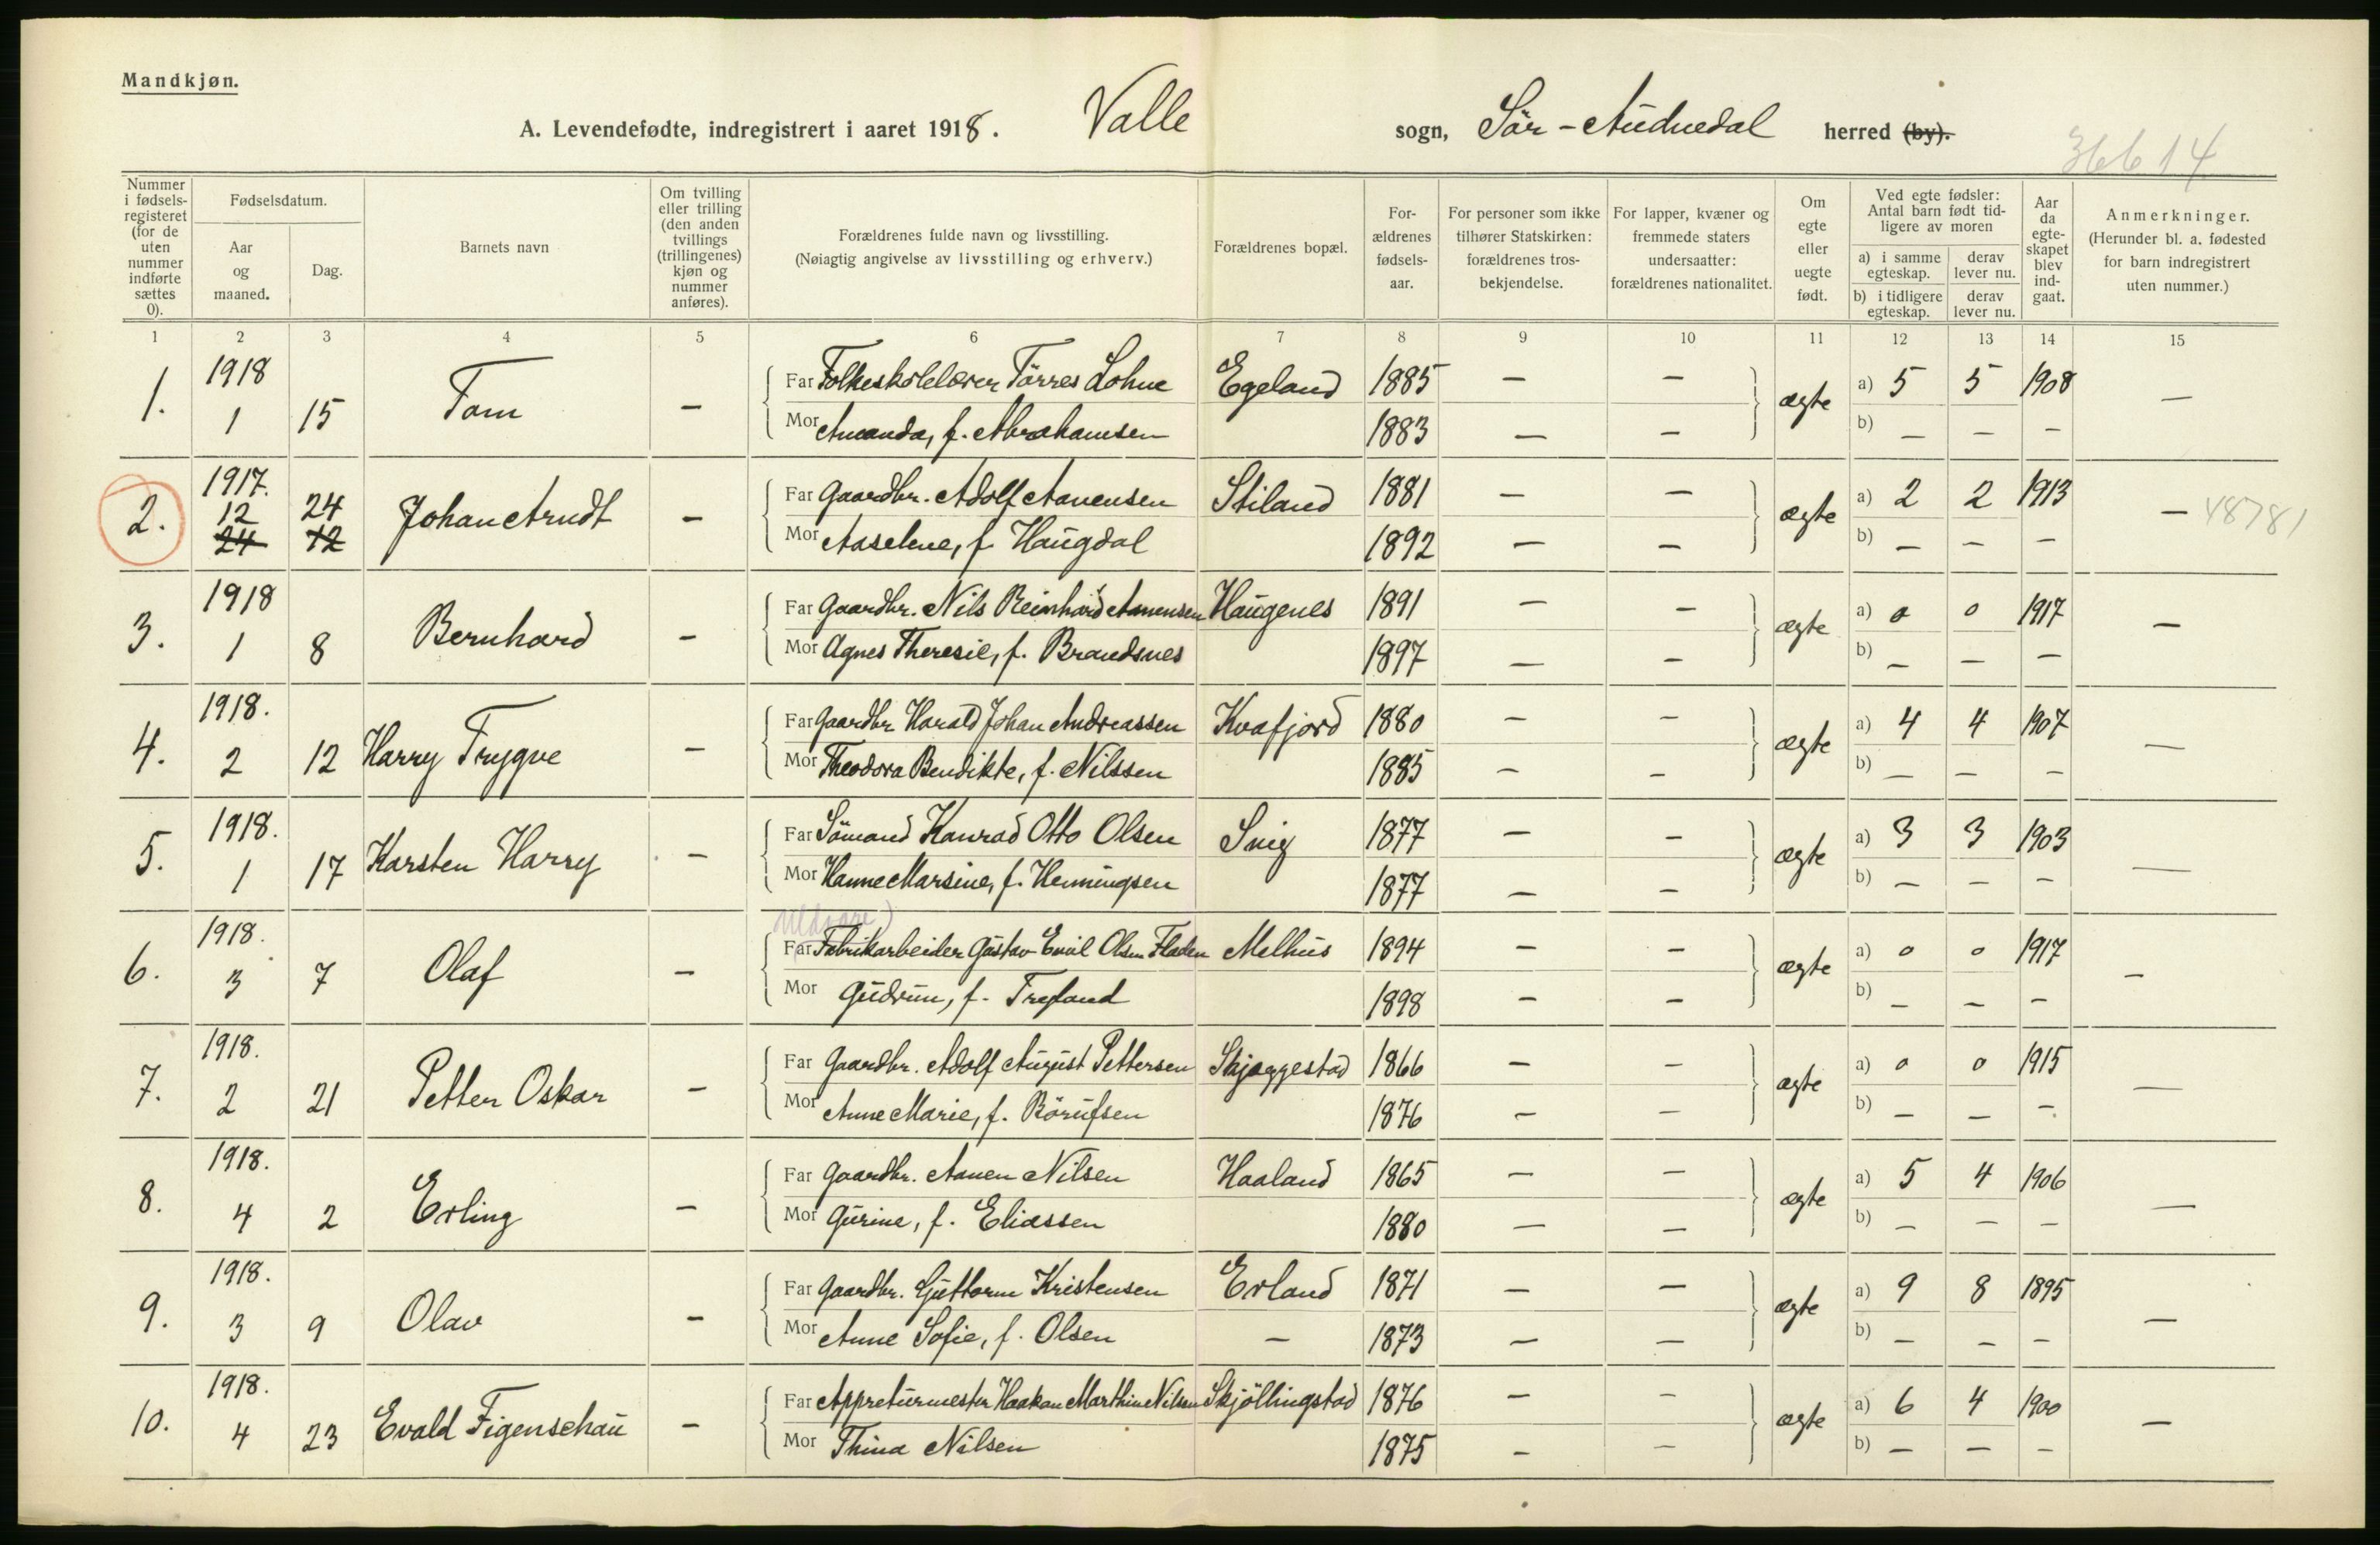 Mandkjøn.
A. Levendefødte, indregistrert i aaret 1918. Valle sogn, Sör-Audnedal herred (by).
36614
Nummer i fødsels-registeret (for de uten nummer indførte sættes 0).
Fødselsdatum.
Aar og maaned.
Dag.
Barnets navn
Om tvilling eller trilling (den anden tvillings (trillingenes) kjøn og nummer anføres).
Forældrenes fulde navn og livsstilling.
(Nøiagtig angivelse av livsstilling og erhverv.)
Forældrenes bopæl.
For-ældrenes fødsels-aar.
For personer som ikke tilhører Statskirken: forældrenes tros-bekjendelse.
For lapper, kvæner og fremmede staters undersaatter: forældrenes nationalitet.
Om egte eller uegte født.
Ved egte fødsler: Antal barn født tid-ligere av moren
a) i samme egteskap.
derav lever nu.
b) i tidligere egteskap.
derav lever nu.
Aar da egte-skapet blev ind-gaat.
Anmerkninger.
(Herunder bl. a. fødested for barn indregistrert uten nummer.)
1 2 3 4 5 6 7 8 9 10 11 12 13 14 15
1918 Far Folkeskolelærer Törres Lohne Egeland 1885 — — a) 5 5 1908
1. 1 15 Tom — ægte —
Mor Amanda, f. Abrahamsen 1883 — — b) — — —
1917. Far Gaardbr. Adolf Aanensen Stiland 1881 — — a) 2 2 1913
2. 12 24 Johan Arndt — ægte — 48781
24 12 Mor Aaselene, f. Haugdal 1892 — — b) — — —
1918 Far Gaardbr. Nils Reinhard Aanensen Haugenes 1891 — — a) 0 0 1917
3. 1 8 Bernhard — ægte —
Mor Agnes Theresie, f. Brandsnes 1897 — — b) — — —
1918. Far Gaardbr Harald Johan Andreassen Kvafjord 1880 — — a) 4 4 1907
4. 2 12 Harry Trygve — ægte —
Mor Theodora Bendikte, f. Nilssen 1885 — — b) — — —
1918. Far Sömand Konrad Otto Olsen Snig 1877 — — a) 3 3 1903
5. 1 17 Karsten Harry — ægte —
Mor Hanne Marsine, f. Henningsen 1877 — — b) — — —
1918. Far Fabrikarbeider Gustav Emil Olsen Fladen Melhus 1894 — — a) 0 0 1917
6. 3 7 Olaf — ægte —
Mor Gudrun, f. Tregland 1898 — — b) — — —
1918. Far Gaardbr. Adolf August Pettersen Skjæggestad 1866 — — a) 0 0 1915
7. 2 21 Petter Oskar — ægte —
Mor Anne Marie, f. Börufsen 1876 — — b) — — —
1918. Far Gaardbr. Aanen Nilsen Haaland 1865 — — a) 5 4 1906
8. 4 2 Erling — ægte —
Mor Gurine, f. Eliassen 1880 — — b) — — —
1918. Far Gaardbr. Guttorm Kristensen Erland 1871 — — a) 9 8 1895
9. 3 9 Olav — ægte —
Mor Anne Sofie, f. Olsen — 1873 — — b) — — —
1918. Far Appreturmester Haakon Marthin Nilsen Skjöllingstad 1876 — — a) 6 4 1900
10. 4 23 Evald Figenschau — ægte —
Mor Thina Nilsen 1875 — — b) — — —